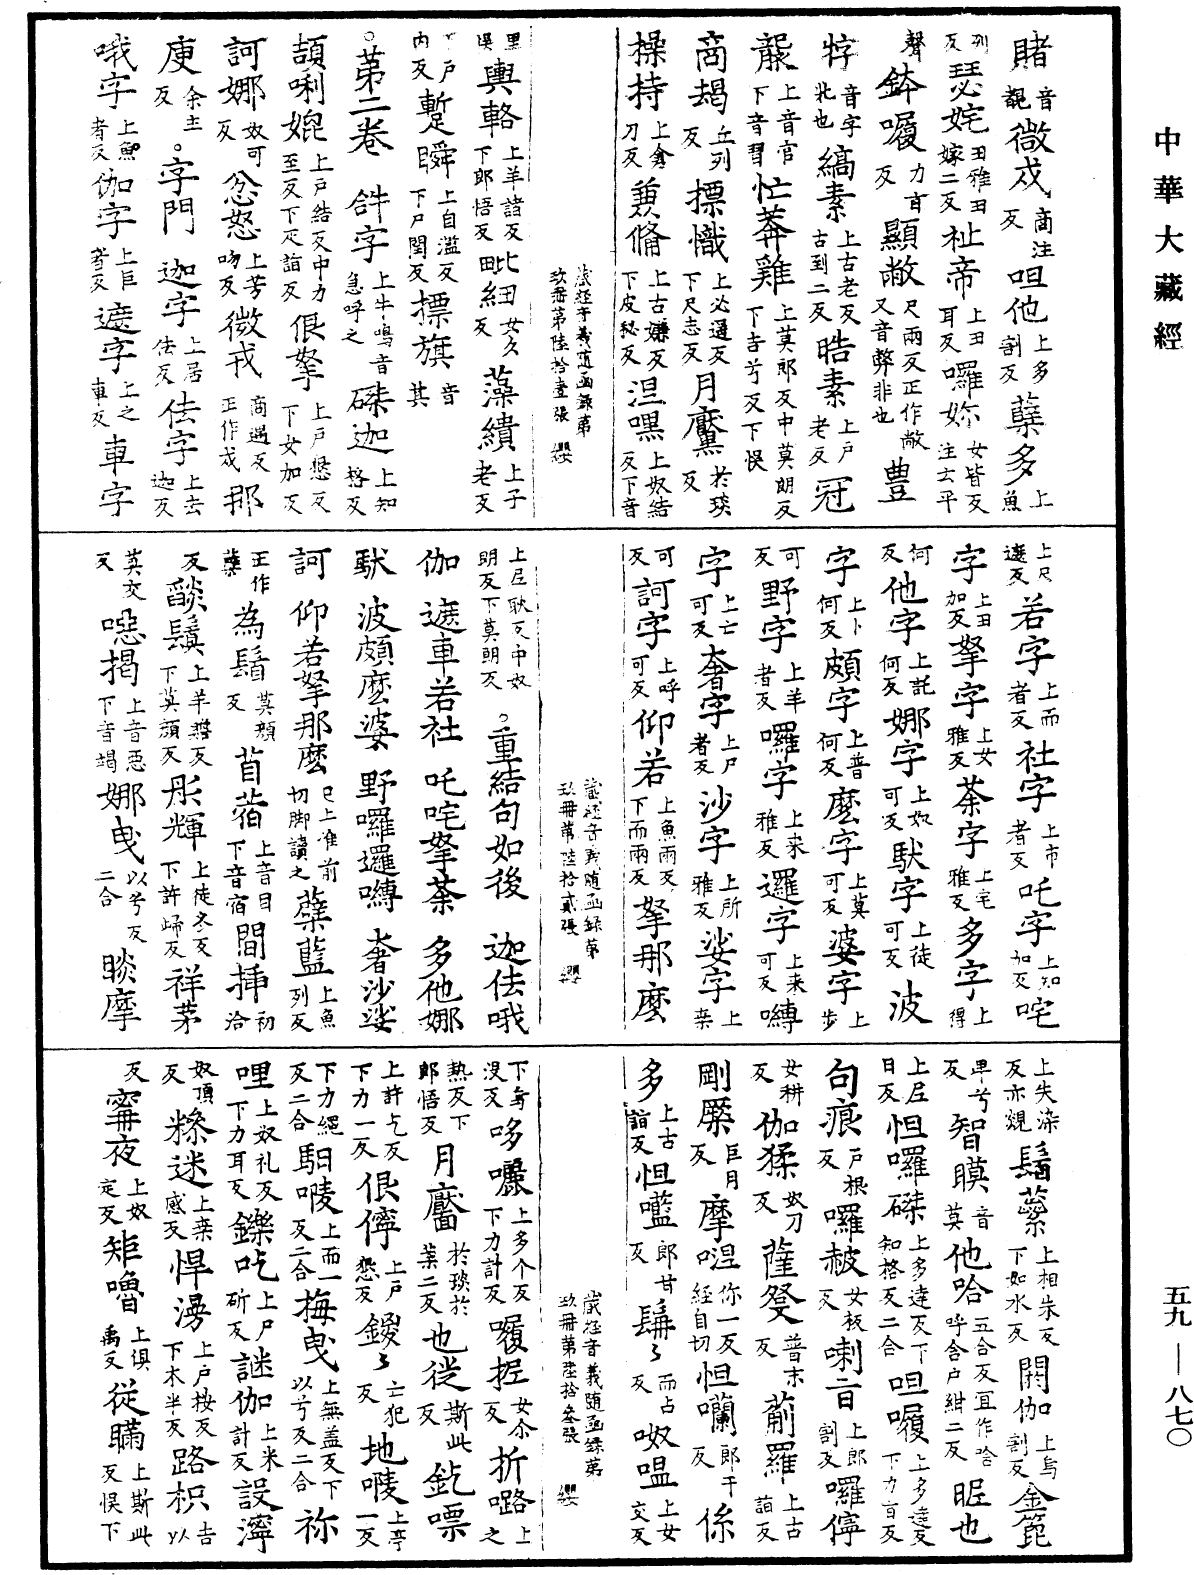 中華大藏經
賭音覩微戍商注反呾他上多割反蘖多上魚
列反瑟姹丑雅丑嫁二反祉帝上丑耳反囉妳女皆反注云平
聲鉢囑力盲反顯敞尺兩反正作敞又音弊非也豊
牸音字牝也縞素上古老反古到二反皓素上戶老反冠
髖上音官下音習忙莽雞上莫郎反中莫朗反下吉兮反下悮
商朅丘列反摽幟上必遥反下尺志反月黶於琰反
操持上禽刀反兼俻上古嫌反下皮秘反涅嘿上奴結反下音
藏經音義随函録第玖冊第陸拾壹張 纓
里悮輿輅上羊諸反下郎悟反毗紐女久反藻繢上子老反
下戶内反蹔瞬上自濫反下尸閏反摽旗音其
○第二卷 䍧字上牛鳴音急呼之磔迦上知格反
頡唎媲上戶結反中力至反下疋詣反佷拏上戶懇反下女加反
訶娜奴可反忿怒上芳吻反微戒商遇反正作戍那
庾余主反○字門 迦字上居佉反佉字上去迦反
哦字上魚者反伽字上巨者反遮字上之車反車字
上尺遮反若字上而者反社字上市者反吒字上知加反咤
字上丑加反拏字上女雅反荼字上宅雅反多字上得
何反他字上託何反娜字上奴可反馱字上徒可反波
字上卜何反頗字上普何反麽字上莫可反婆字上步
可反野字上羊者反囉字上来雅反邏字上来可反嚩
字上亡可反奢字上尸者反沙字上所雅反娑字上桒
可反訶字上呼可反仰若上魚兩反下而兩反拏那麽
藏經音義随函録第玖冊第陸拾貳張 纓
上尼耿反中奴明反下莫朗反○重結句如後 迦佉哦
伽 遮車若社 吒咤拏荼 多他娜
馱 波頗麽婆 野囉邏嚩 奢沙娑
訶 仰若拏那麽已上准前切脚讀之蘖藍上魚列反
正作蘖為鬚莫顔反苜蓿上音目下音宿間挿初洽
反𦦨鬚上羊贍反下莫頒反彤輝上徒冬反下許歸反祥茅
莫交反噁揭上音惡下音竭娜曳以兮反二合睒摩
上失染反亦覢鬚蘂上相朱反下如水反閼伽上烏割反金篦
卑兮反智瞙音莫他哈五合反宜作唅呼含戶紺二反昵也
上尼日反怛囉磔上多達反下知格反二合呾囑上多達反下力盲反
句痕戶根反囉赧女板反喇曷上郎割反囉儜
女耕反伽猱奴刀反薩癹普末反薊羅上古詣反
剛橜巨月反摩涅你一反經自切怛囒郎干反係
多上古詣反怛㘕郎甘反髯髯而占反呶嗢上女交反
藏經音義随函録第玖冊第陸拾叁張 纓
下烏沒反哆囇上多个反下力計反囑抳女尒反折㗉上之
熱反下郎悟反月黶於琰於葉二反也徙斯此反鈝嘌
上許乞反下力一反佷儜上戶懇反錽錽亡犯反地㗚上亭一反
下力繩反二合馹㗚上而一反二合梅曳上無盖反下以兮反二合祢
哩上奴礼反下力耳反鑠吃上尸斫反謎伽上米計反設濘
奴頂反糝迷上桒感反悍湧上戶按反下木半反路枳吉以
反寗夜上奴定反矩嚕上俱禹反徙瞞上斯此反悮下
五九—八七〇